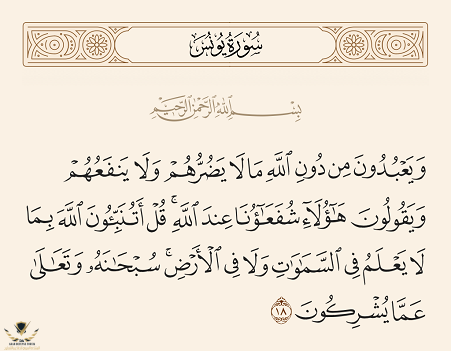 سُورَةُ يُونُسَ
بِسْمِ اللَّهِ الرَّحْمَٰنِ الرَّحِيمِ
وَيَعْبُدُونَ مِن دُونِ اللَّهِ مَا لَا يَضُرُّهُمْ وَلَا يَنفَعُهُمْ
وَيَقُولُونَ هَٰٓؤُلَآءِ شُفَعَٰٓؤُنَا عِندَ اللَّهِ ۚ قُلْ أَتُنَبِّـُٔونَ اللَّهَ بِمَا
لَا يَعْلَمُ فِي السَّمَٰوَٰتِ وَلَا فِي الْأَرْضِ ۚ سُبْحَٰنَهُۥ وَتَعَٰلَىٰ
عَمَّا يُشْرِكُونَ ١٨